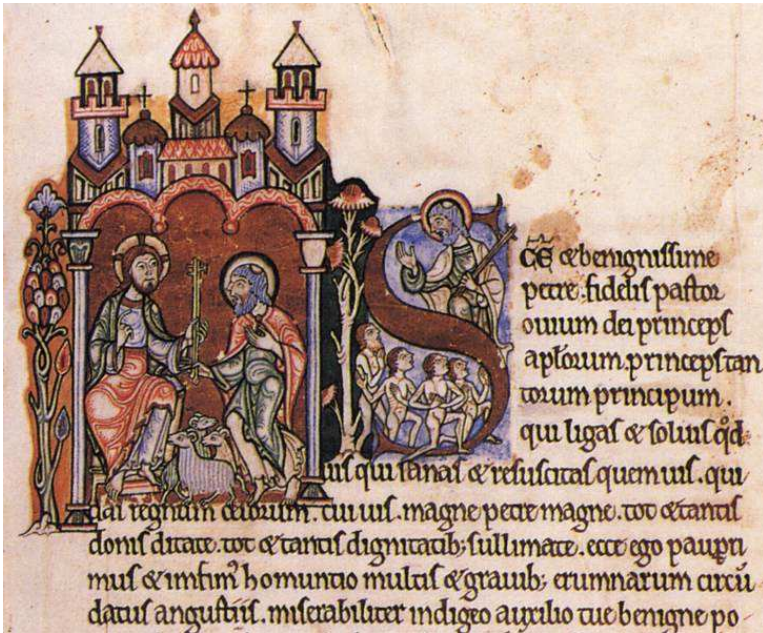 SC̄E & benignissime
petre. fidelis pastor
ouium dei princeps
ap̄lorum. princeps tan
torum principum.
qui ligas & soluis q̊d
uis qui sanas & resuscitas quem uis. qui
das regnum celorum. cui uis. magne petre magne. tot & tantis
donis ditate. tot & tantis dignitatib; sullimate. ecce ego paup̱ri
mus & imfim᾽ homuntio multis & grauib; erumnarum circū
datus angustiis. miserabiliter indigeo auxilio tue benigne po-